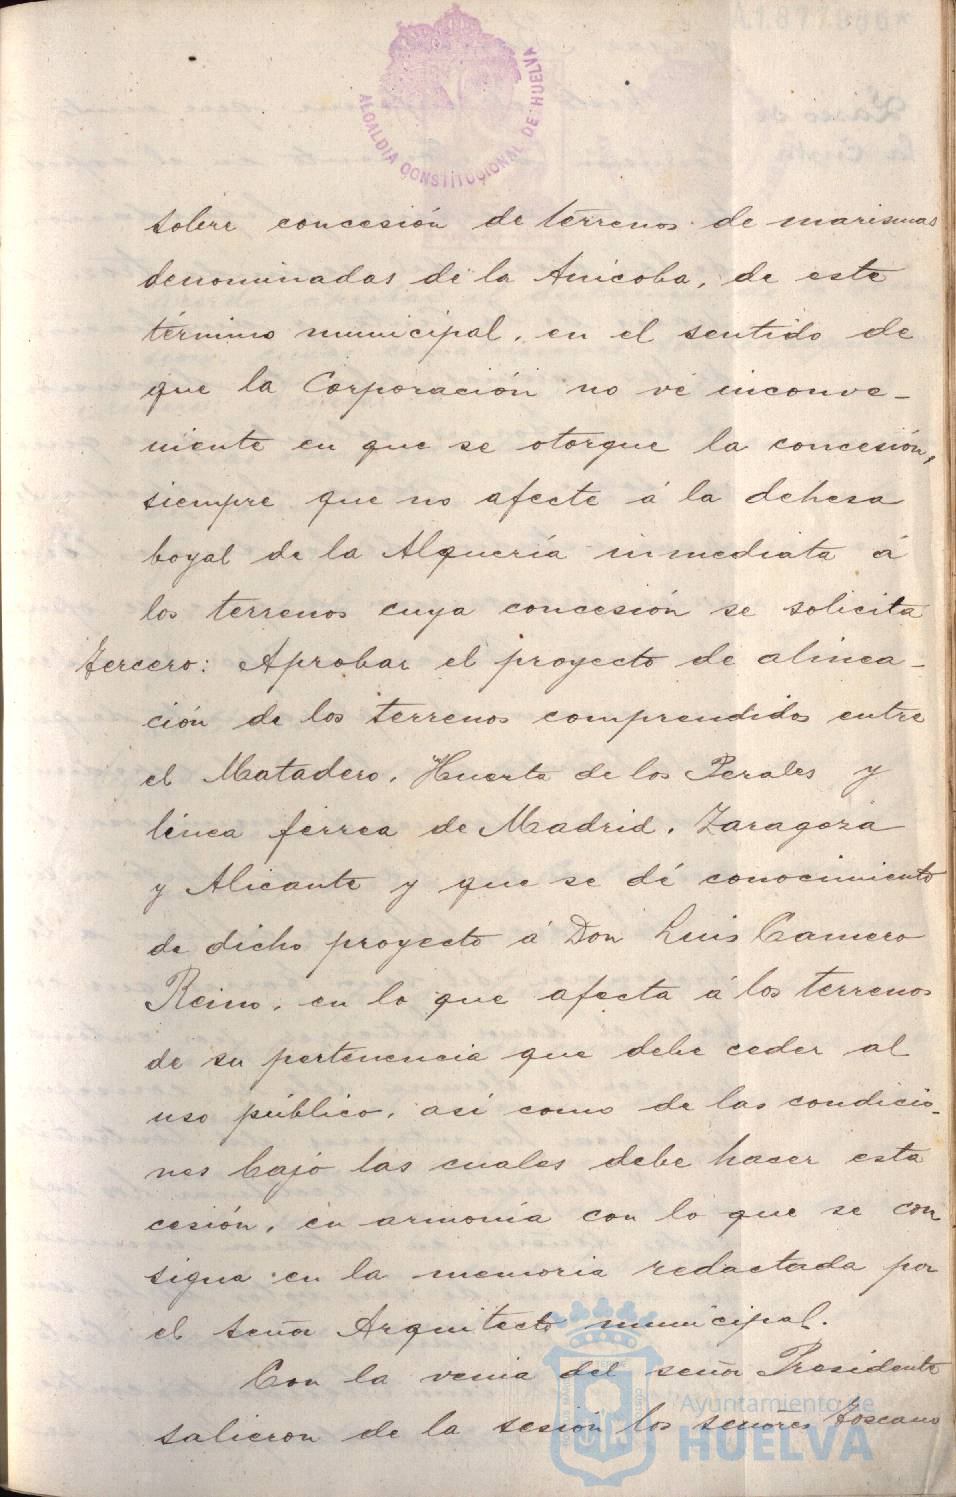 A.1.877.866*
ALCALDIA CONSTITUCIONAL DE HUELVA
sobre concesión de terrenos de marismas
denominadas de la Anicoba, de este
término municipal, en el sentido de
que la Corporación no vé inconve-
niente en que se otorgue la concesión,
siempre que no afecte á la dehesa
boyal de la Alquería inmediata á
los terrenos cuya concesión se solicita
Tercero: Aprobar el proyecto de alinea-
ción de los terrenos comprendidos entre
el Matadero, Huerta de los Perales y
línea ferrea de Madrid, Zaragoza
y Alicante y que se dé conocimiento
de dicho proyecto á Don Luis Camero
Reino, en lo que afecta á los terrenos
de su pertenencia que debe ceder al
uso público, así como de las condicio-
nes bajo las cuales debe hacer esta
cesión, en armonía con lo que se con
signa en la memoria redactada por
el señor Arquitecto municipal.
Con la venia del señor Presidente
salieron de la sesión los señores Toscano
Ayuntamiento de
HUELVA